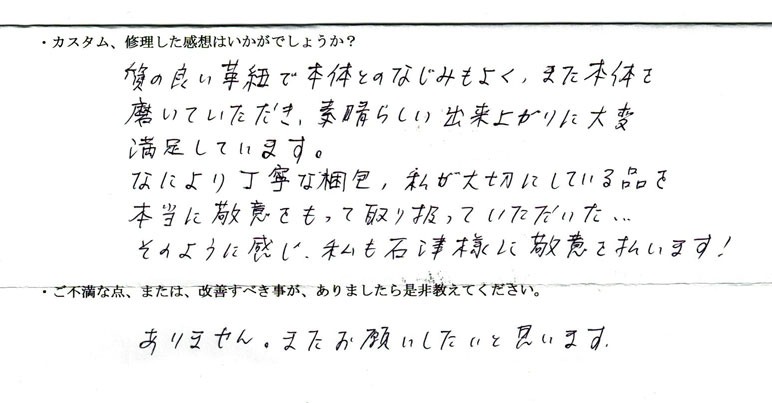 ・カスタム、修理した感想はいかがでしょうか？
質の良い革紐で本体とのなじみもよく、また本体を
磨いていただき、素晴らしい出来上がりに大変
満足しています。
なにより丁寧な梱包，私が大切にしている品を
本当に敬意をもって取り扱っていただいた…
そのように感じ、私も石津様に敬意を払います！
・ご不満な点、または、改善すべき事が、ありましたら是非教えてください。
ありません。またお願いしたいと思います．